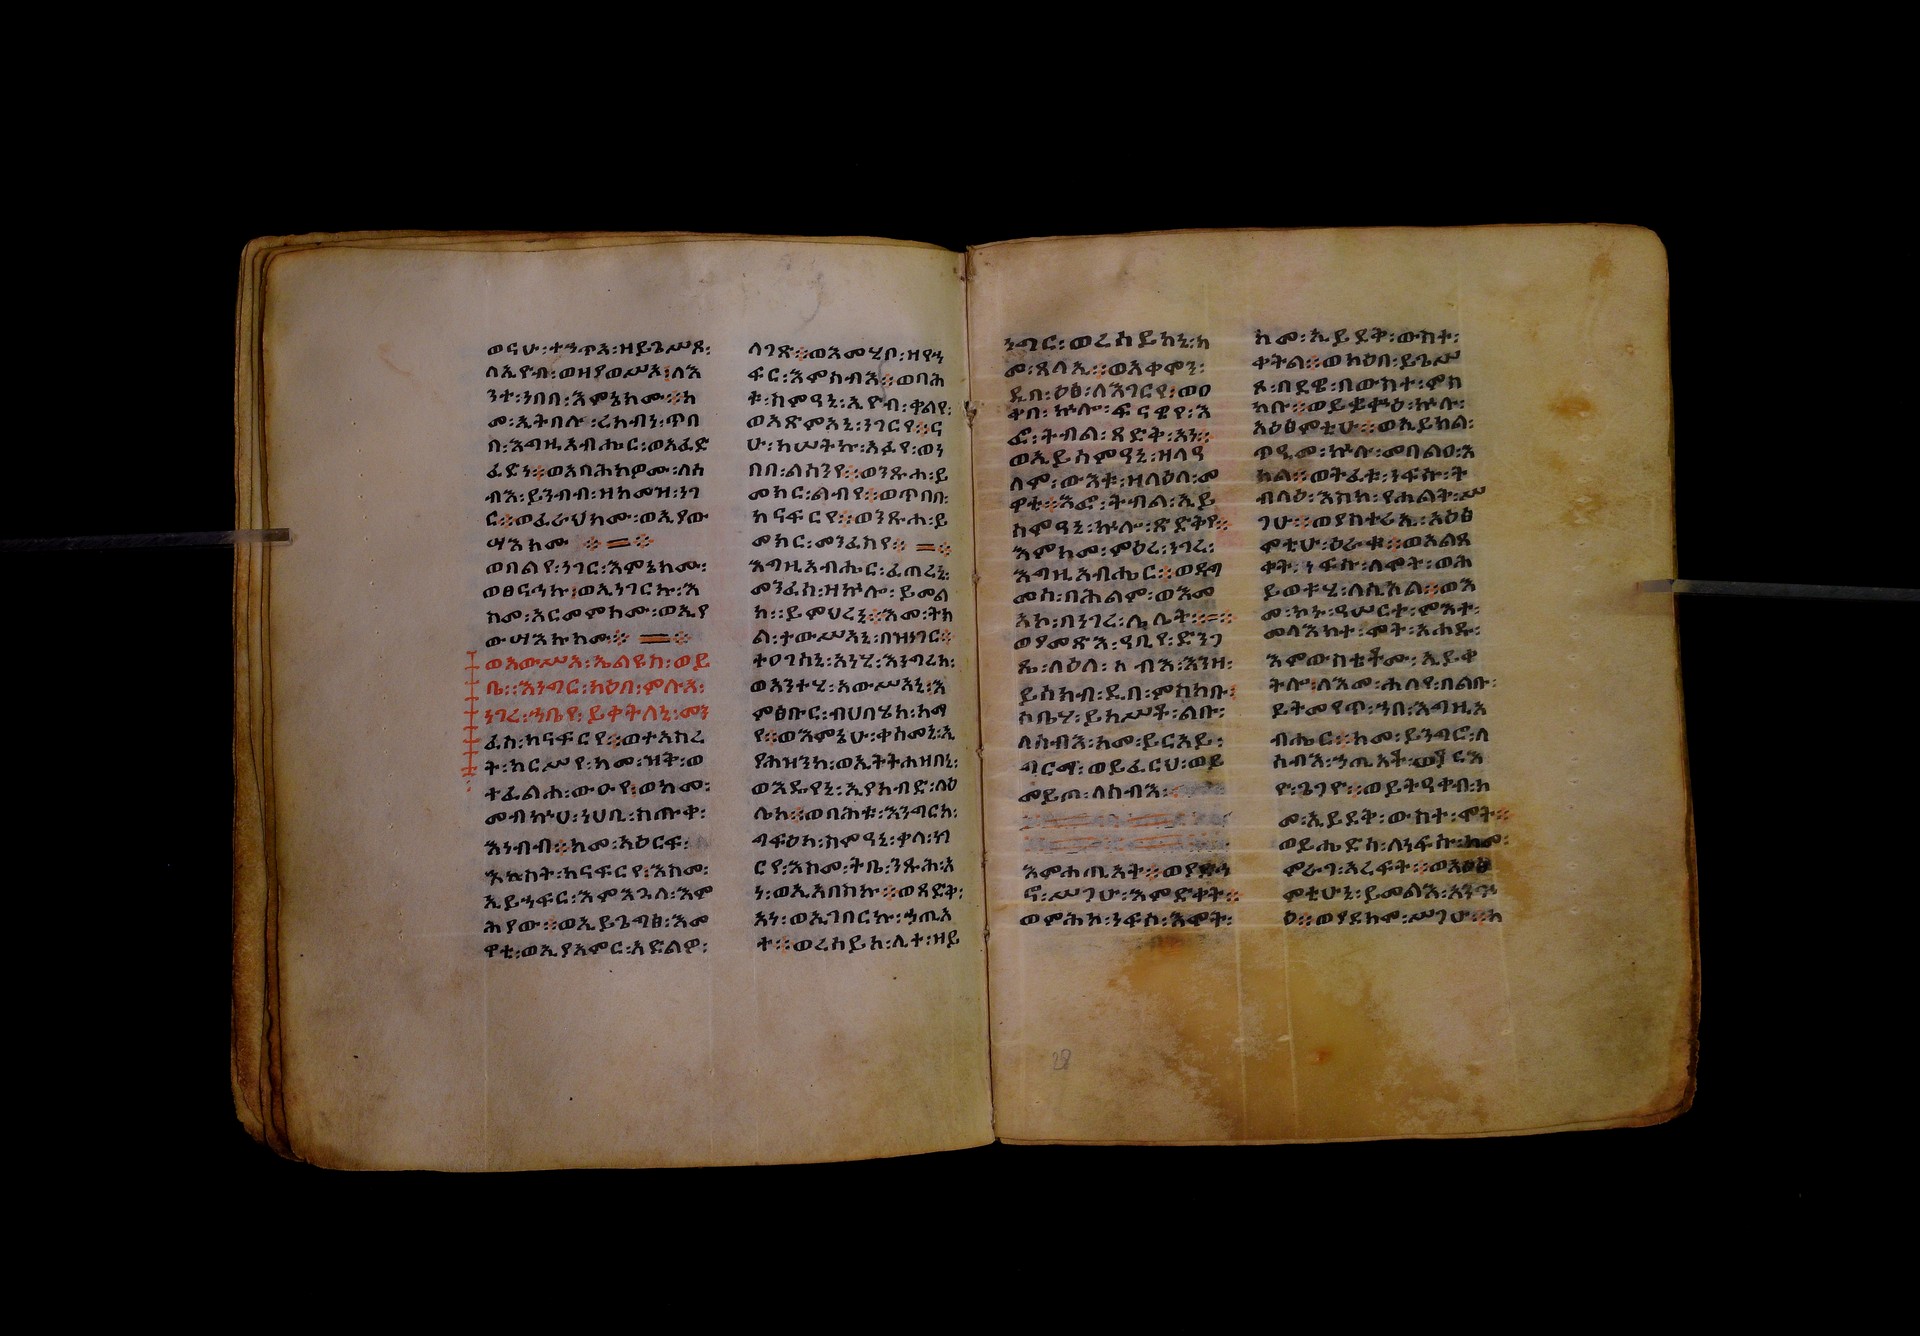 ወናሁ፡ተንጥአ፡ዘይጌሥጾ፡
ለኢዮብ፡ወዘያወሥእ፡ለእ
ንተ፡ነበበ፡እምኔክሙ።ከ
መ፡ኢትበሉ፡ረከብነ፡ጥበ
በ፡እግዚአብሔር፡ወአፈድ
ፈድነ።ወአባሕክዎሙ፡ለሰ
ብእ፡ይንብብ፡ዘከመዝ፡ነገ
ር።ወፈራህክሙ፡ወኢያው
ሣእክሙ።
ወበልየ፡ነገር፡እምኔክሙ፡
ወፀናሕኩ፡ወኢነገርኩ፡እ
ስመ፡አርመምክሙ፡ወኢያ
ውሣእክክሙ።
ወአውሥአ፡ኤልዩስ፡ወይ
ቤ።እንግር፡ካዕበ፡ምሉእ፡
ነገረ፡ኀቤየ፡ይቀትለኒ፡መን
ፈስ፡ከናፍርየ።ወተአስረ
ት፡ከርሥየ፡ከመ፡ዝቅ፡ወ
ተፈልሐ፡ውዑየ፡ወከመ፡
መብኵሀ፡ነሀቢ፡ስጡቀ፡
እነብብ።ከመ፡አዕርፍ፡
እኪስት፡ከናፍርየ፡እስመ፡
ኢይኀፍር፡እምእጓለ፡እም
ሕያው።ወኢይጌግፀ፡እመ
ዋቲ፡ወኢያአምር፡አድልዎ፡
ላገጽ።ወእመሂቦ፡ዘየኀ
ፍር፡እምሰብእ።ወባሕ
ቱ፡ስምዓኒ፡ኢዮብ፡ቃልየ፡
ወአጽምአኒ፡ነገርየ።ና
ሁ፡ከሠትኩ፡አፈየ፡ወነ
በበ፡ልሳንየ።ወንጹሐ፡ይ
መክር፡ልብየ።ወጥበበ፡
ከናፍርየ።ወንጹሐ፡ይ
መክር፡መንፈስየ።
እግዚአብሔር፡ፈጠረኒ፡
መንፈስ፡ዘኵሎ፡ይመል
ክ።ይምህረኒ።እመ፡ትክ
ል፡ተውሥአኒ፡በዝነገር።
ተዐገሰኒ፡አነሂ፡እንግረከ፡
ወአንተሂ፡አውሥአኒ፡እ
ምፀቡር፡ብህበሄከ፡ከማ
የ።ወእምኔሁ፡ቀሰመኒ፡ኢ
ያሕዝንከ፡ወኢትትሐዘበኒ፡
ወእዴየኒ፡ኢየከብድ፡ላዕ
ሌከ።ወባሕቱ፡እንግርከ፡
ግፍዕከ፡ስምዓኒ፡ቃለ፡ነገ
ርየ፡እስመ፡ትቤ፡ንጹሕ፡አ
ነ፡ወኢአበስኩ።ወጻድቅ፡
አነ፡ወኢገበርኩ፡ኀጢአ
ተ።ወረሰይከ፡ሊተ፡ዘይ
ንግር፡ወረሰይከኒ፡ከ
መ፡ጸላኢ።ወአቀሞነ፡
ዲበ፡ዕፅ፡ለእገርየ፡ወዐ
ቀበ፡ኵሎ፡ፍናዌየ፡እ
ፎ፡ትብል፡ጻድቅ፡አነ።
ወኢይሰምዓኒ፡ዘላዓ
ለም፡ውእቱ፡ዘላዕለ፡መ
ዋቲ።እፎ፡ትብል፡ኢይ
ሰምዓኒ፡ኵሎ፡ጽድቅየ።
እምከመ፡ምዕረ፡ነገረ፡
እግዚአብሔር።ወዳግ
መሰ፡በሕልም፡ወእመ
አኮ፡በነገረ፡ሌሊት።
ወያመጽእ፡ዓቢየ፡ድንጋ
ጼ፡ላዕለ፡ሰብእ፡እንዘ፡
ይሰክብ፡ዲበ፡ምስካቡ፡
ሶቤሃ፡ይከሥት፡ልቡ፡
ለሰብእ፡አመ፡ይርእይ፡
ግርማ፡ወይፈርህ፡ወይ
መይጦ፡ለሰብእ፡
እምሐጢአት።ወያድኅ
ኖ፡ሥጋሁ፡እምድቀት።
ወምሕከ፡ነፍሰ፡እሞት፡
ከመ፡ኢይደቅ፡ውስተ፡
ቀትል።ወካዕበ፡ይጌሥ
ጾ፡በደዌ፡በውስተ፡ምስ
ካቡ።ወይቈቍዕ፡ኵሉ፡
አዕፅምቲሁ።ወኢይክል፡
ጥዒመ፡ኵሉ፡መባልዐ፡እ
ክል።ወትፈቱ፡ነፍሱ፡ት
ብላዕ፡እስከ፡የሐልቅ፡ሥ
ጋሁ።ወያስተሬኢ፡አዕፅ
ምቲሁ፡ዕራቁ።ወአልጸ
ቀት፡ነፍሱ፡ለሞት፡ወሕ
ይወቱሂ፡ለሲኦል።ወእ
መ፡ኮኑ፡ዓሠርተ፡ምእተ፡
መላእክተ፡ሞት፡አሐዱ፡
እምውስቴቶሙ፡ኢይቀ
ትሎ፡ለእመ፡ሐለየ፡በልቡ፡
ይትመየጥ፡ኀበ፡እግዚአ
ብሔር።ከመ፡ይንግር፡ለ
ሰብእ፡ኀጢአት፡ወያርእ
ዮ፡ጌጋየ።ወይትዓቀብ፡ከ
መ፡ኢይደቅ፡ውስተ፡ሞት።
ወይሔድስ፡ለነፍሱ፡ከመ፡
ምራገ፡አረፍት።ወአዕፅ
ምቲሁኒ፡ይመልእ፡አንጕ
ዕ።ወያደክሞ፡ሥጋሁ።ከ
28